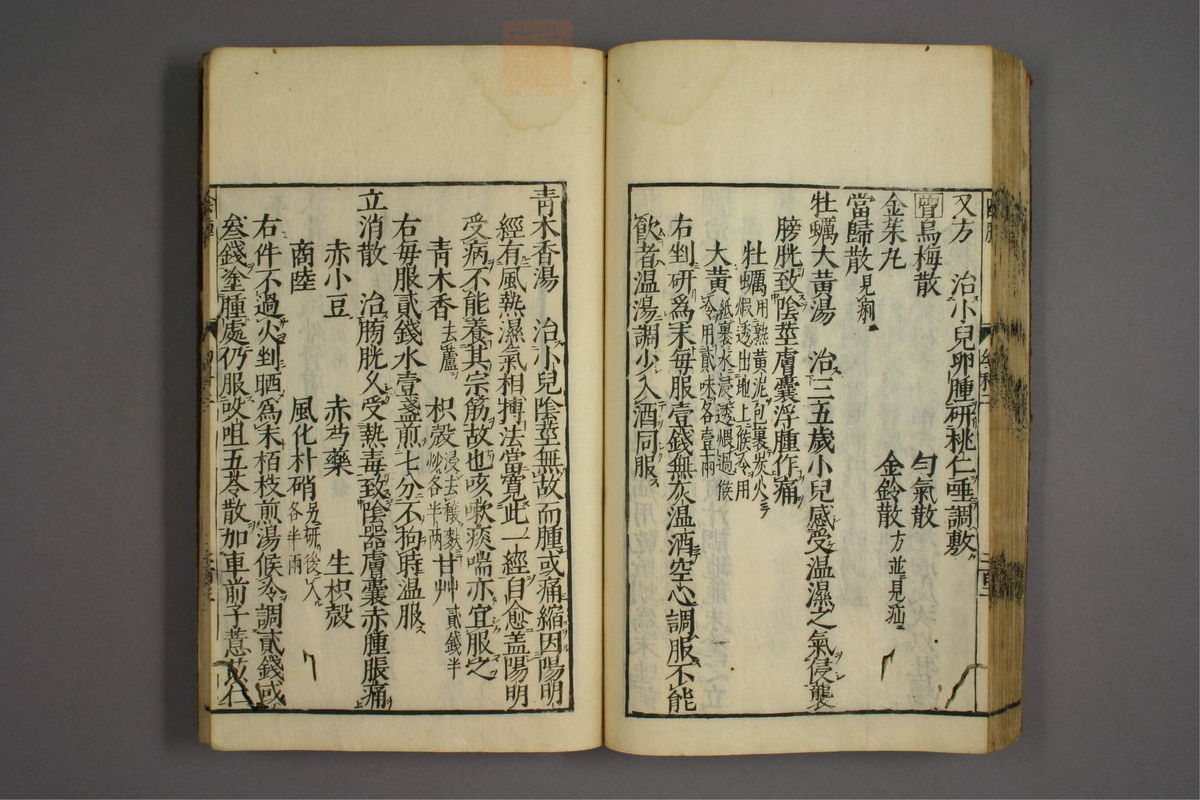 又方　治小兒卵腫研桃仁唾調敷
曾烏梅散　勻氣散
金茱丸　金鈴散方並見疝
當歸散見痢
牡蠣大黃湯　治三五歲小兒感受温濕之氣侵襲
膀胱致陰莖膚囊浮腫作痛
牡蠣用熟黃泥包裹炭火
假透出地上候冷用
大黃紙裹水浸透煨過候
冷用貳味各壹兩
右剉研爲末每服壹錢無灰温酒空心調服不能
飮者温湯調少入酒同服
青木香湯　治小兒陰莖無故而腫或痛縮因陽明
經有風熱濕氣相搏法當寛此一經自愈盖陽明
受病不能養其宗筋故也咳嗽痰喘亦宜服之
青木香去蘆　枳殼浸去穰麩炒各半兩　甘艸貳錢半
右每服貳錢水壹盞煎七分不拘時温服
立消散　治膀胱久受熱毒致陰器膚囊赤腫脹痛
赤小豆　赤芍藥　生枳殼
商陸　風化朴硝另研後入各半兩
右件不過火剉晒爲末栢枝煎湯候冷調貳錢或
叁錢塗腫處仍服㕮咀五苓散加車前子薏苡仁